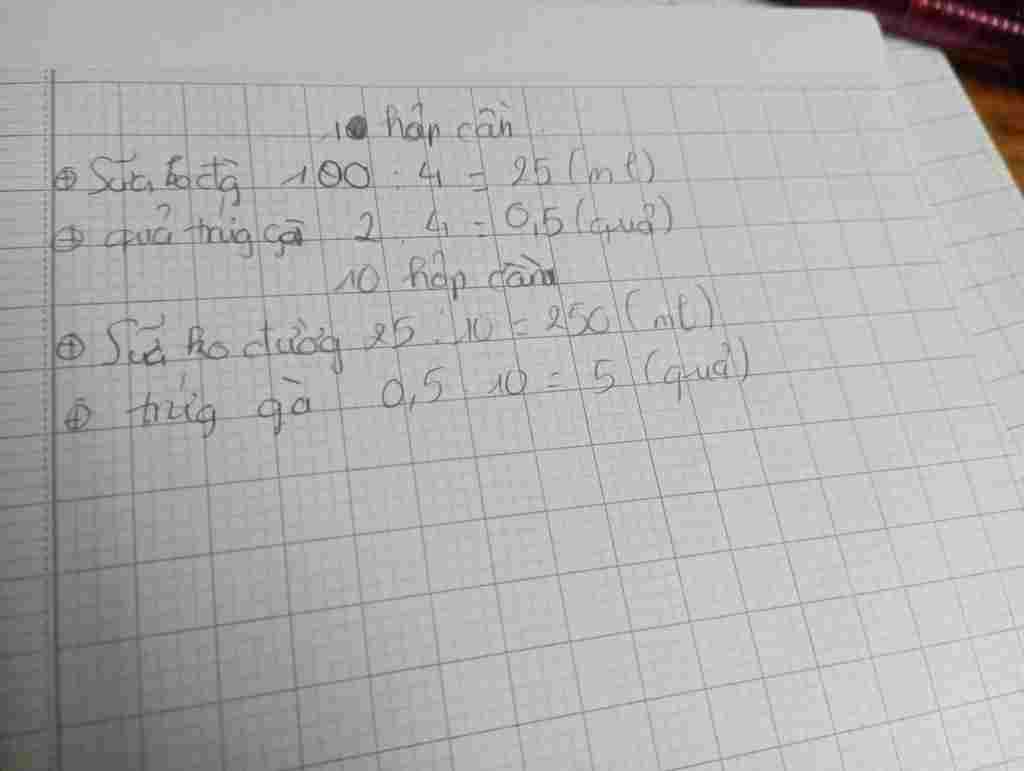 1 hộp cần
⊕ Sữa ko đg 100 : 4 = 25 (ml)
⊕ quả trứg gà 2 : 4 = 0,5 (quả)
10 hộp cần
⊕ Sữa ko đường 25 . 10 = 250 (ml)
⊕ trứg gà 0,5 . 10 = 5 (quả)